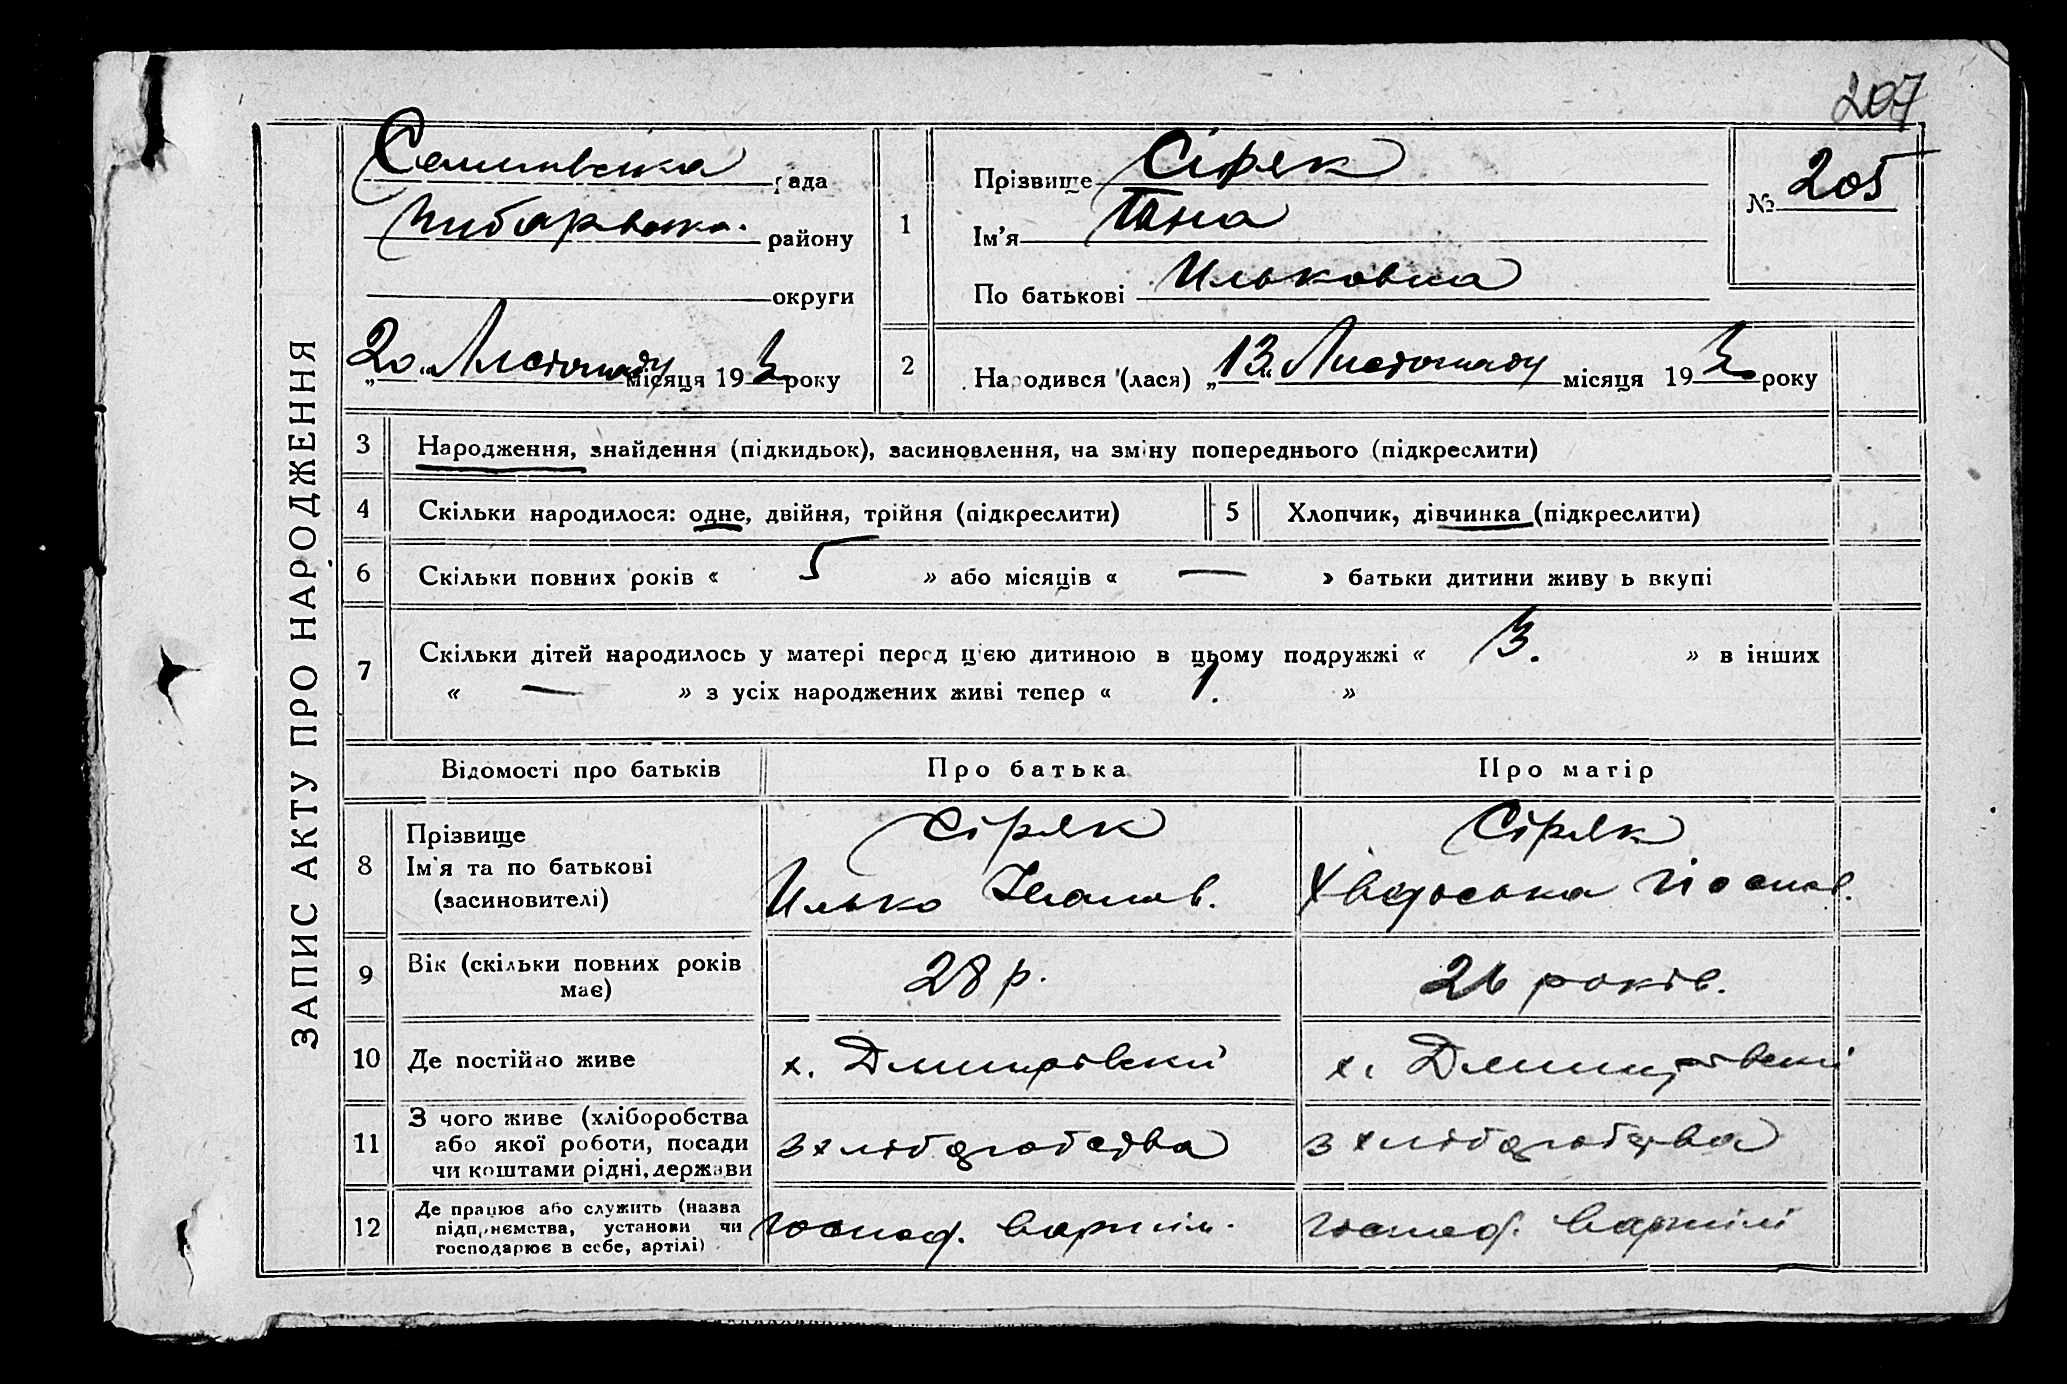 207
ЗАПИС АКТУ ПРО НАРОДЖЕННЯ
рада
району
округи
„20“ Листопаду місяця 193 року
1
Прізвище Сіряк
Ім'я Гана
По батькові Ильковна
№ 205
2
Народився (лася) „13“ Листопаду місяця 193 року
3 Народження, знайдення (підкидьок), засиновлення, на зміну попереднього (підкреслити)
4 Скільки народилося: одне, двійня, трійня (підкреслити) 5 Хлопчик, дівчинка (підкреслити)
6 Скільки повних років « 5 » або місяців « — » батьки дитини живуть вкупі
7 Скільки дітей народилось у матері перед цією дитиною в цьому подружжі « 3. » в інших
« — » з усіх народжених живі тепер « 1. »
Відомості про батьків Про батька Про матір
8 Прізвище
Ім'я та по батькові
(засиновителі)
Сіряк
Илько Іванов.
Сіряк
Хведоська Йосипов.
9 Вік (скільки повних років має) 28 р. 26 років.
10 Де постійно живе х. Дмитрівский х. Дмитрівский
11 З чого живе (хліборобства
або якої роботи, посади
чи коштами рідні, держави
з хліборобства з хліборобства
12 Де працює або служить (назва
підприємства, установи чи
господарює в себе, артілі)
господ. в артіли. господ. в артілі